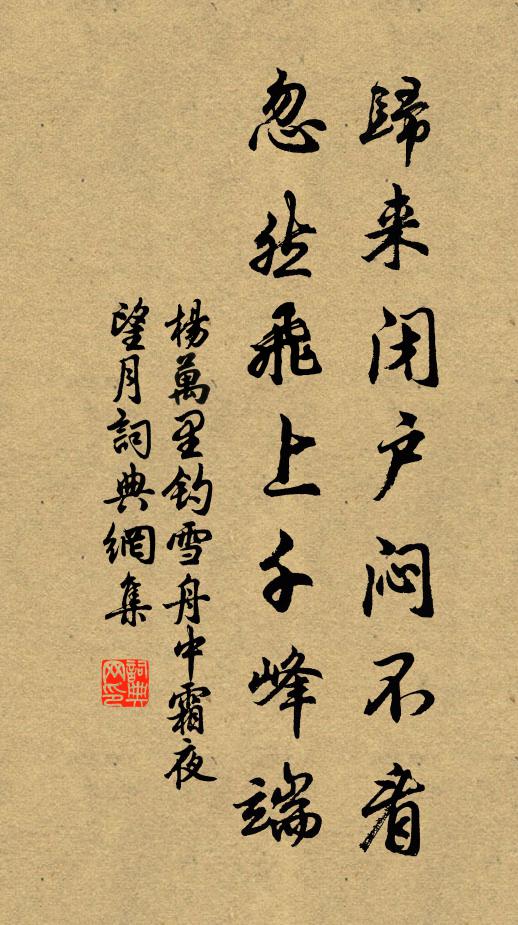 歸来闭户闷不看
忽然飛上千峰端
楊萬里钓雪舟中霜夜
望月詞典網集
詞典网印